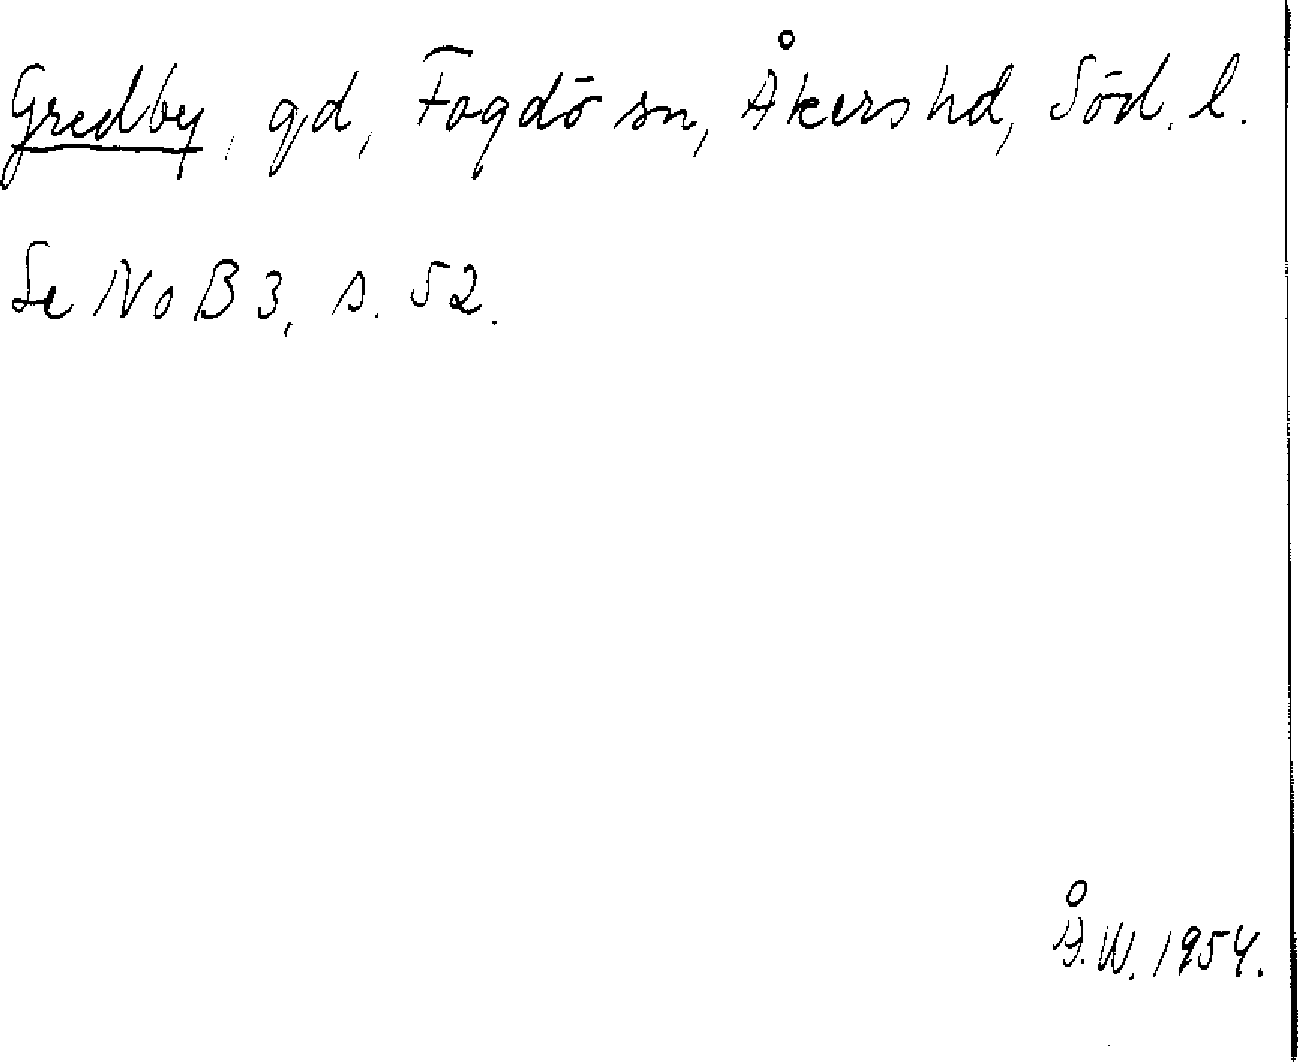 Gredby, gd, Fogdö sn, Åkers hd, Söd. l.
Se NoB 3, s. 52.
Å.W. 1954.